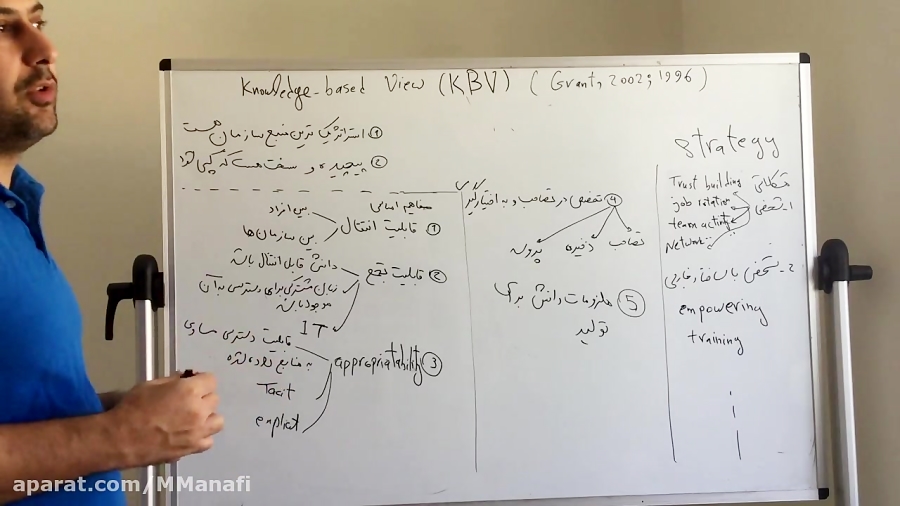 Knowledge-based View (KBV) ( Grant, 2002; 1996 )
① استراتژیک ترین منبع سازمان هست
② پیچیده و سخت هست که کپی شود
مفاهیم اساسی
① قابلیت انتقال
بین افراد
بین سازمان‌ها
② قابلیت تجمع
دانش قابل انتقال باشد
زبان مشترکی برای دسترسی به آن
موجود باشد
IT
③ appropriatability
قابلیت دسترسی مساوی
به منابع
Tacit
explicit
④ تخصص در تصاحب و به اختیار گیری
تصاحب
ذخیره
⑤ ملزومات دانش برای
تولید
strategy
مشکلاتی
۱- شخصی
Trust building
job rotation
team activity
Network
۲- شخص با ساختار خارجی
empowering
training
aparat.com/MManafi